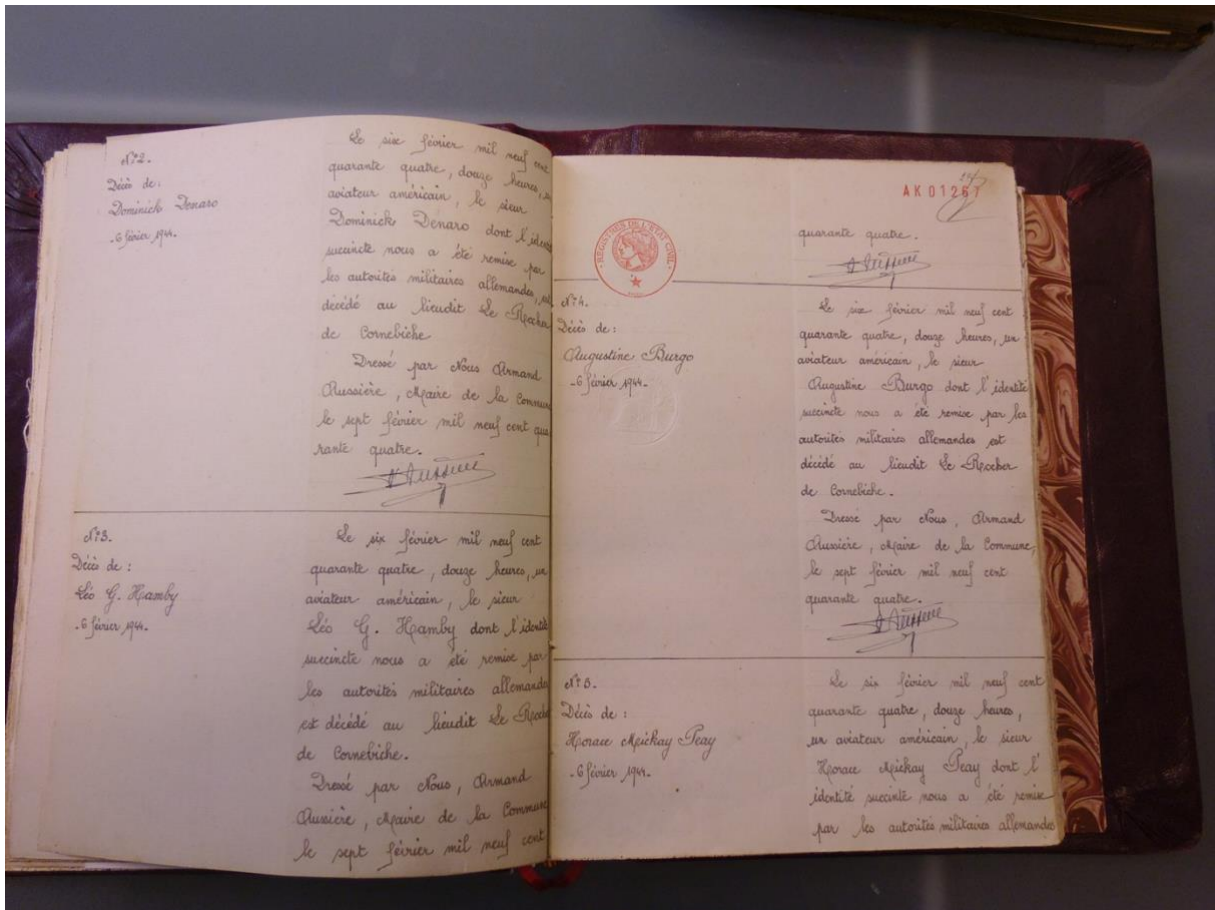 N°2.
Décès de:
Dominick Denaro
-6 février 1944-
Le six février mil neuf cent
quarante quatre, douze heures, un
aviateur américain, le sieur
Dominick Denaro dont l'identité
succincte nous a été remise par
les autorités militaires allemandes, est
décédé au lieudit Le Rocher
de Cornebiche
Dressé par Nous Armand
Aussière, Maire de la Commune
le sept février mil neuf cent qua
rante quatre.
N°3.
Décès de :
Léo G. Hamby
-6 février 1944-
Le six février mil neuf cent
quarante quatre, douze heures, un
aviateur américain, le sieur
Léo G. Hamby dont l'identité
succincte nous a été remise par
les autorités militaires allemandes
est décédé au lieudit Le Rocher
de Cornebiche.
Dressé par Nous, Armand
Aussière, Maire de la Commune
le sept février mil neuf cent
AK 01267
REGISTRES DE L'ETAT CIVIL
quarante quatre.
A Aussière
N°4.
Décès de :
Augustine Burgo
-6 février 1944-
Le six février mil neuf cent
quarante quatre, douze heures, un
aviateur américain, le sieur
Augustine Burgo dont l'identité
succincte nous a été remise par les
autorités militaires allemandes est
décédé au lieudit Le Rocher
de Cornebiche.
Dressé par Nous, Armand
Aussière, Maire de la Commune,
le sept février mil neuf cent
quarante quatre.
A Aussière
N°5.
Décès de :
Horace Mickay Peay
-6 février 1944-
Le six février mil neuf cent
quarante quatre, douze heures,
un aviateur américain, le sieur
Horace Mickay Peay dont l'
identité succincte nous a été remise
par les autorités militaires allemandes